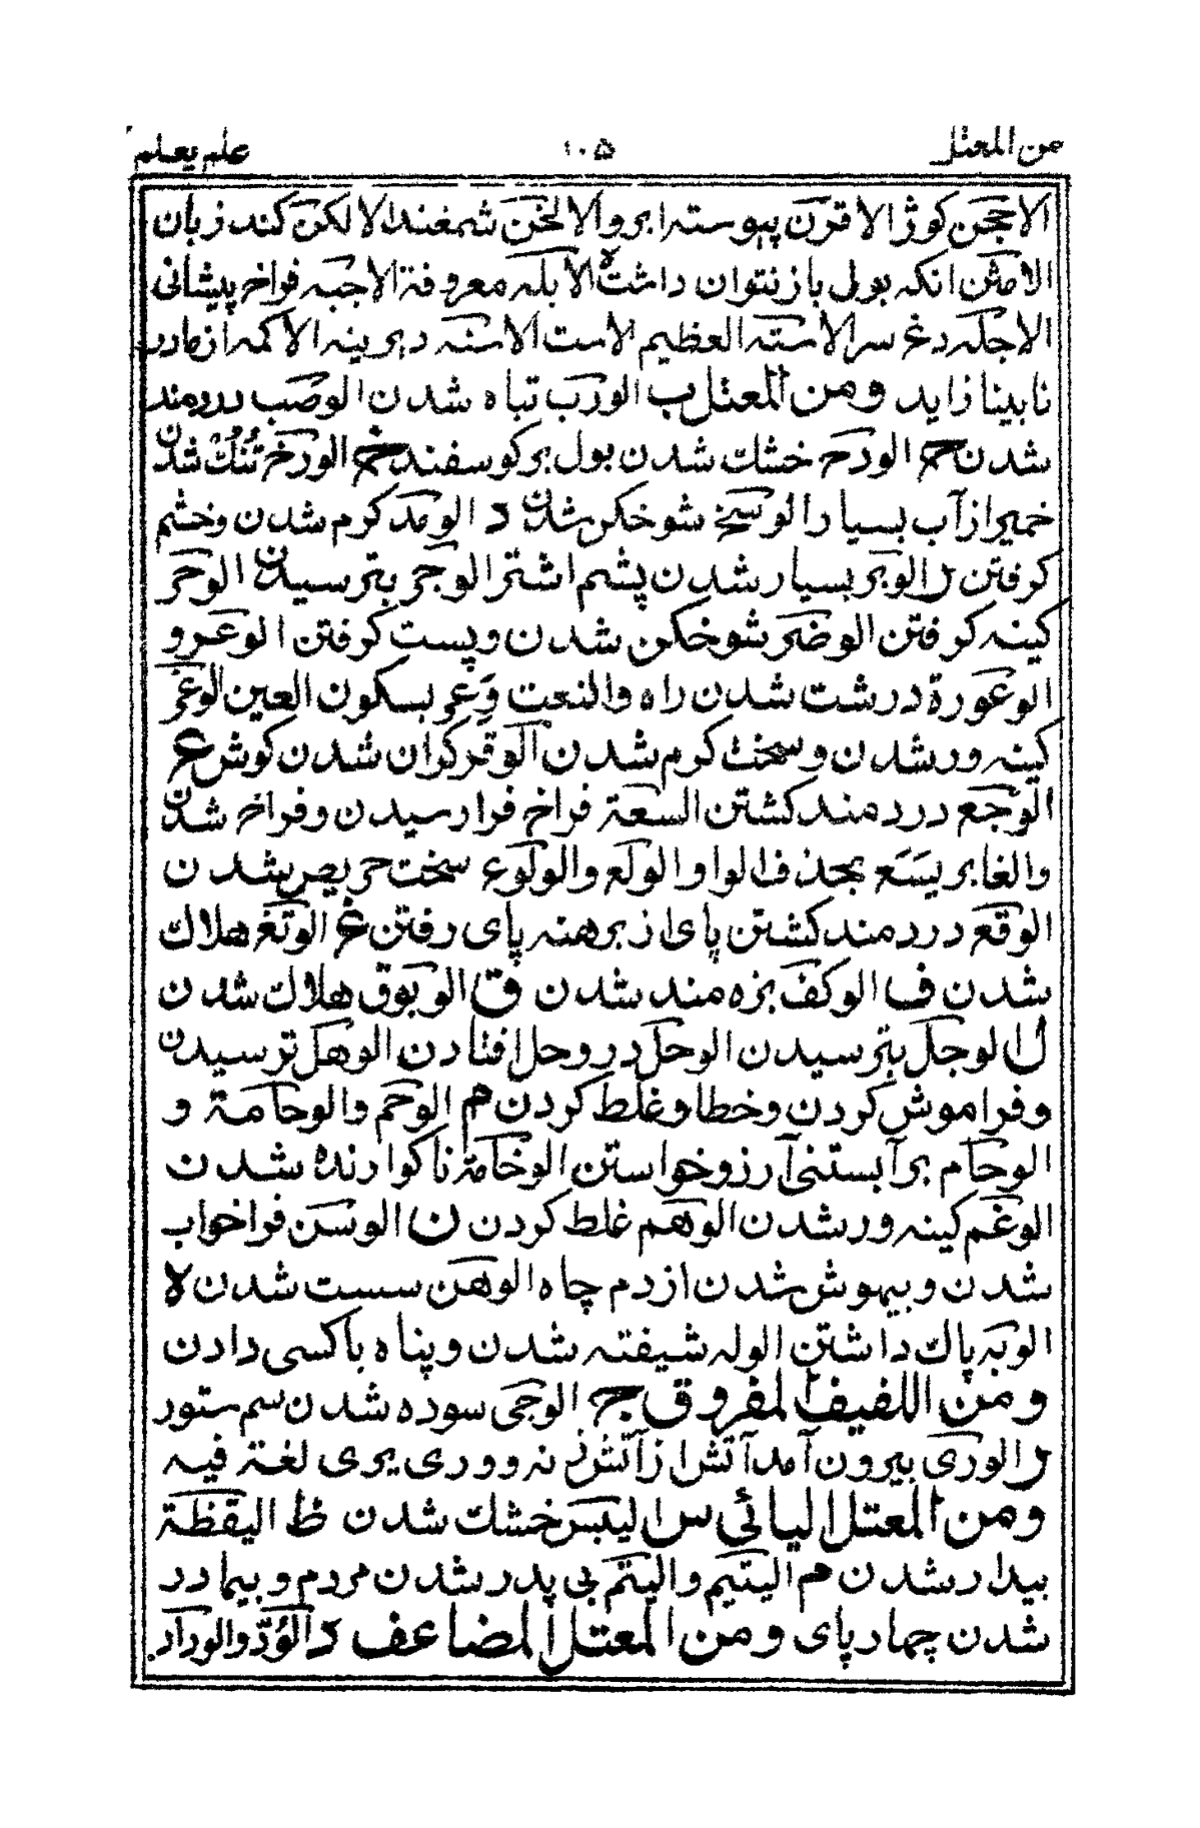 من المعتل ۱۰۵ علم يعلم
الاحجن كوژ الاقرن پيوسته ابرو الالخن شمغند الالكن كند زبان
الامثن انكه بول باز نتوان داشت ه الابله معروفة الاجبه فراخ پيشانى
الاجله دغ سر الاسته العظيم الاست الاسنه ديرينه الاكمه از مادر
نابينا زايد ومن المعتل ب الورب تباه شدن الوصب دردمند
شدن ح الودح خشك شدن بول بر كوسفند خ الورخ تنك شدن
خمير از آب بسيار الوسخ شوخكن شدن د الومد كرم شدن وخشم
كرفتن ر الوبر بسيار شدن پشم اشتر الوجر بترسيدن الوحر
كينه كرفتن الوضر شوخكن شدن وپست كرفتن الوعر و
الوعورة درشت شدن راه والنعت وَعر بسكون العين الوغر
كينه ور شدن وسخت كرم شدن الوقر كران شدن كوش ع
الوجع دردمند كشتن السعة فراخ فرا رسيدن وفراخ شدن
والغابر يَسَع بحذف الواو الولع والولوع سخت حريص شدن
الوقع دردمند كشتن پاى از برهنه پاى رفتن غ الوتغ هلاك
شدن ف الوكف بزه مند شدن ق الوبوق هلاك شدن
ل الوجل بترسيدن الوحل در وحل افتادن الوهل ترسيدن
وفراموش كردن وخطا وغلط كردن م الوحم والوحامة و
الوحام بر آبستنى آرزو خواستن الوخامة ناكوارنده شدن
الوغم كينه ور شدن الوهم غلط كردن ن الوسن فرا خواب
شدن وبيهوش شدن از دم چاه الوهن سست شدن ه
الوبه پاك داشتن الوله شيفته شدن وپناه با كسى دادن
ومن اللفيف المفروق ج الوجى سوده شدن سم ستور
ر الورى بيرون آمد آتش از آتش زنه وورى يرى لغة فيه
ومن المعتل اليائى س اليبس خشك شدن ظ اليقظة
بيدار شدن م اليتيم واليتم بى پدر شدن مردم وبيمادر
شدن چهار پاى ومن المعتل المضاعف د الوُدّ والوداد